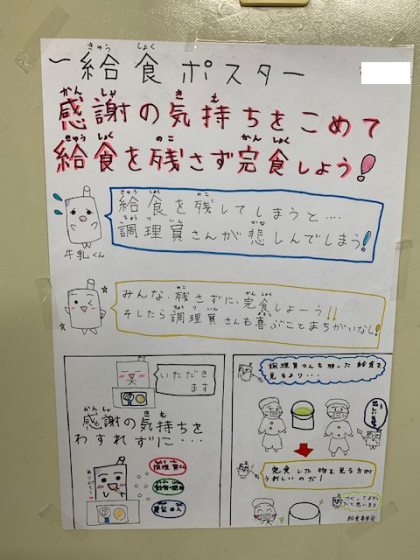 ～給食ポスター
感謝の気持ちをこめて
給食を残さず完食しよう！
給食を残してしまうと…
調理員さんが悲しんでしまう！
牛乳くん
みんな、残さずに、完食しよーう！！
そしたら調理員さんも喜ぶことまちがいなし！
いただき
ます
感謝の気持ちを
わすれずに・・・
ありがとう
調理員さん
農家さん
調理員さんも残った給食を
見るより…
完食した物を見る方が
うれしいのだ！
給食委員会